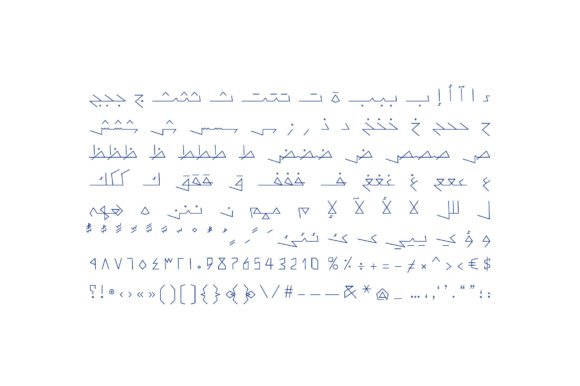 ء ا آ أ إ ب ببب ة ت تتت ث ثثث ج ججج
ح ححح خ خخخ د ذ ر ز س سسس ش ششش
ص صصص ض ضضض ط ططط ظ ظظظ
ع ععع غ غغغ ف ففف ق ققق ك ككك
ل للل م ممم ن ننن ه ههه
و ؤ
٩٨٧٦٥٤٣٢١٠ 9876543210 % ٪ ÷ + = − ≠ × ^ > < € $
؟ ! ‹ › « » ( ) [ ] { } \ / # & * @ _ …